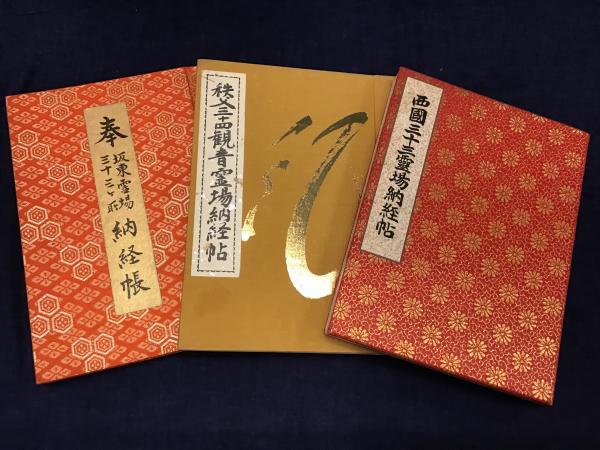 奉
坂東霊場
三十三ヶ所
納経帳
秩父三十四観音霊場納経帖
西國三十三靈場納経帖